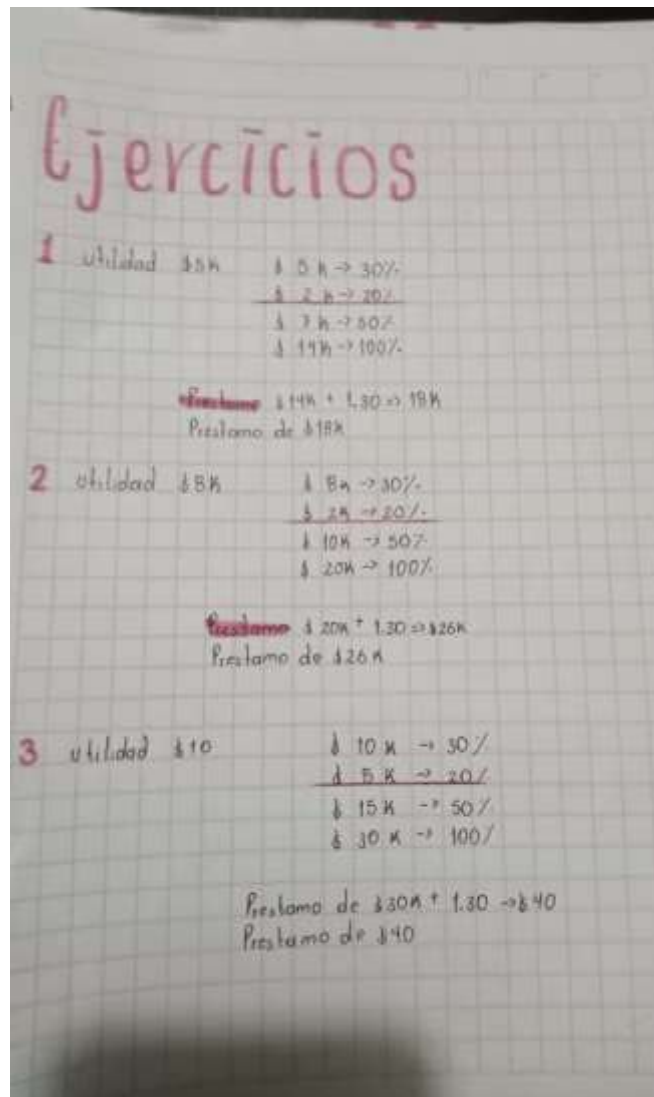 Ejercicios
1 utilidad $5K $ 5 K → 30%
$ 2 K → 20%
$ 7 K → 50%
$ 14K → 100%
Prestamo $14K + 1.30 => 18K
Prestamo de $18K
2 utilidad $8K $ 8K → 30%
$ 2K → 20%
$ 10K → 50%
$ 20K → 100%
Prestamo $ 20K + 1.30 => $26K
Prestamo de $26K
3 utilidad $10 $ 10 K → 30%
$ 5 K → 20%
$ 15K → 50%
$ 30 K → 100%
Prestamo de $30K + 1.30 → $40
Prestamo de $40